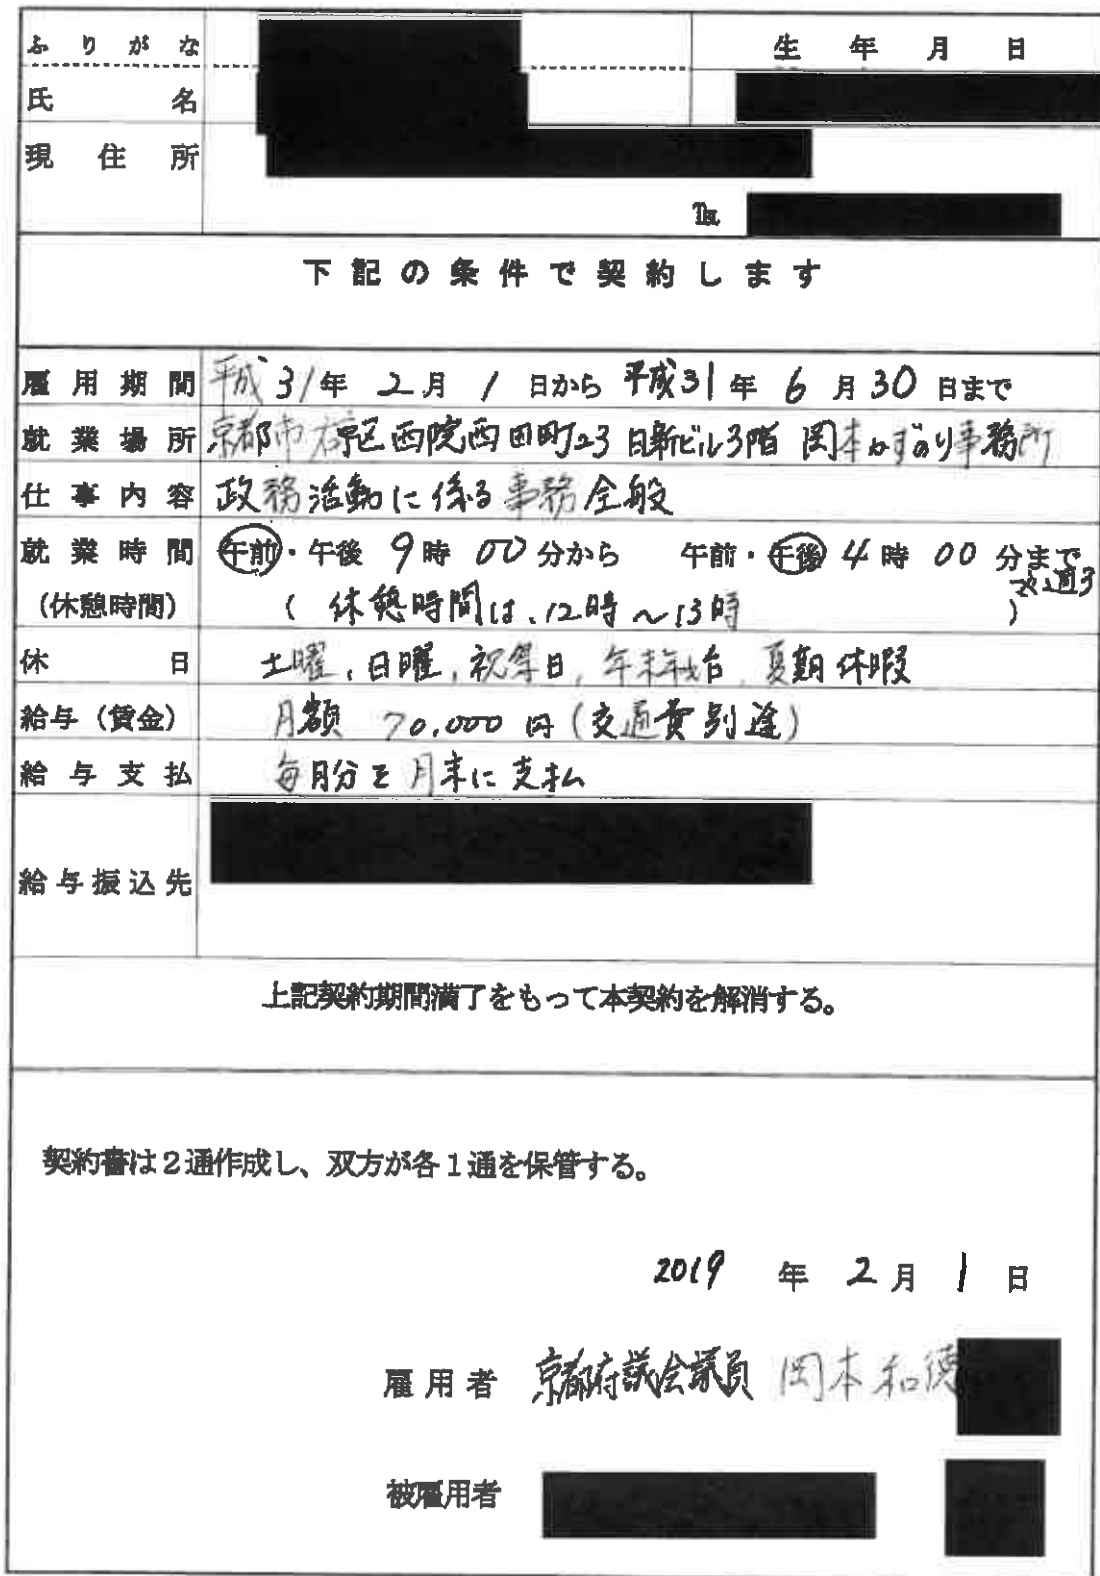 ふりがな
生年月日
氏名
現住所
℡
下記の条件で契約します
雇用期間 平成31年 2月 1日から 平成31年 6月30日まで
就業場所 京都市右京区西院西田町23 日新ビル3階 岡本かずのり事務所
仕事内容 政務活動に係る事務全般
就業時間 午前・午後 9時00分から 午前・午後 4時00分まで
週3
(休憩時間) (休憩時間は、12時~13時)
休日 土曜、日曜、祝祭日、年末年始、夏期休暇
給与(賃金) 月額 70,000円(交通費別途)
給与支払 毎月分を月末に支払
給与振込先
上記契約期間満了をもって本契約を解消する。
契約書は2通作成し、双方が各1通を保管する。
2019年2月1日
雇用者 京都府議会議員 岡本和徳
被雇用者